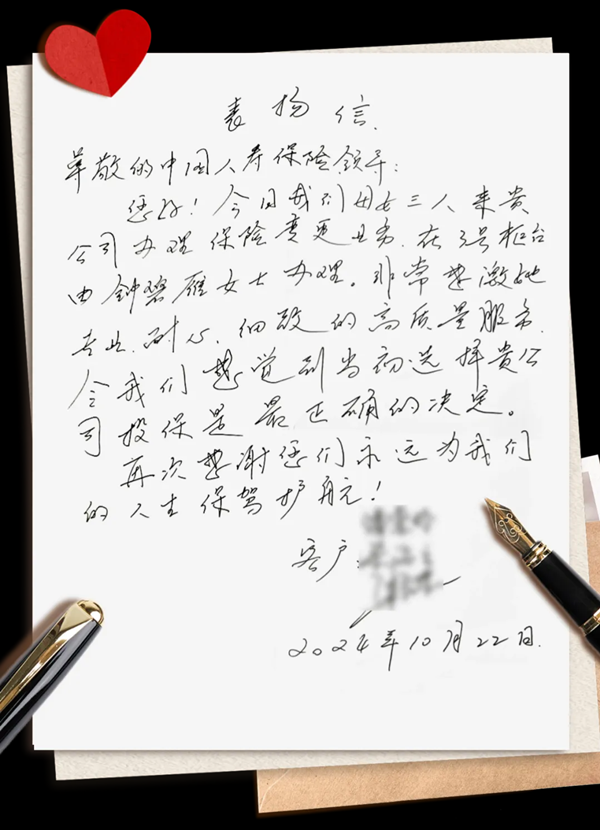 表扬信.
尊敬的中国人寿保险领导:
您好!今日我们母女三人来贵
公司办理保险变更业务.在3号柜台
由钟碧雁女士办理。非常感激她
专业.耐心.细致的高质量服务.
令我们感觉到当初选择贵公
司投保是最正确的决定。
再次感谢您们永远为我们
的人生保驾护航!
客户:
2024年10月22日.